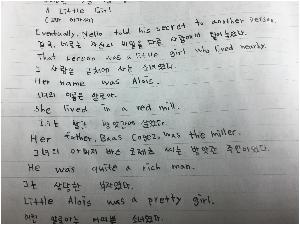 A Little Girl
Eventually, Nello told his secret to another person.
결국, 네로는 자신의 비밀을 다른 사람에게 털어놓았다.
That person was a little girl who lived nearby.
그 사람은 근처에 사는 소녀였다.
Her name was Alois.
그녀의 이름은 알로아.
She lived in a red mill.
그녀는 빨간 방앗간에 살았다.
Her father, Baas Cogez, was the miller.
그녀의 아버지 바스 코제츠 씨는 방앗간 주인이었다.
He was quite a rich man.
그는 상당한 부자였다.
Little Alois was a pretty girl.
어린 알로아는 예쁜 소녀였다.